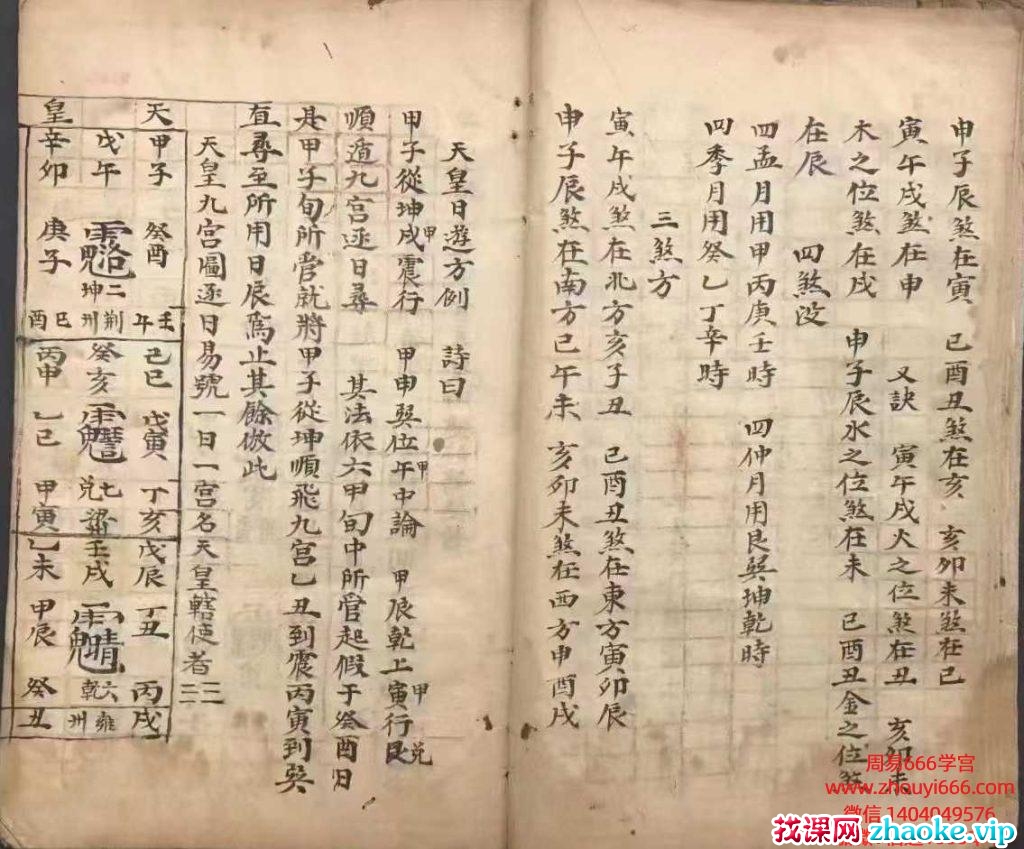 申子辰煞在寅　巳酉丑煞在亥　亥卯未煞在巳
寅午戌煞在申　又訣　寅午戌火之位煞在丑　亥卯未
木之位煞在戌　申子辰水之位煞在未　巳酉丑金之位煞
在辰　四煞没
四孟月用甲丙庚壬時　四仲月用艮巽坤乾時
四季月用癸乙丁辛時
三煞方
寅午戌煞在北方亥子丑　巳酉丑煞在東方寅卯辰
申子辰煞在南方巳午未　亥卯未煞在西方申酉戌
天皇日遊方例　詩曰
甲子從坤戌甲震行　甲申巽位午甲中論　甲辰乾上寅甲行艮兑
順遁九宫逐日尋　其法依六甲旬中所管起假于癸酉日
是甲子旬所管就將甲子從坤順飛九宫乙丑到震丙寅到巽
直尋至所用日辰爲止其餘倣此
天皇九宫圖逐日易號一日一宫名天皇轄使者三三
天
甲子　癸酉　壬午
戊午　坤二　荆州
皇
辛卯　庚子　己酉
己巳　戊寅　丁亥
癸亥　兑七　梁
丙申　乙巳　甲寅
戊辰　丁丑　丙戌
壬戌　乾六　雍州
乙未　甲辰　癸丑
周易666学宫
www.zhouyi666.com
微信1404049576
找课网zhaoke.vip